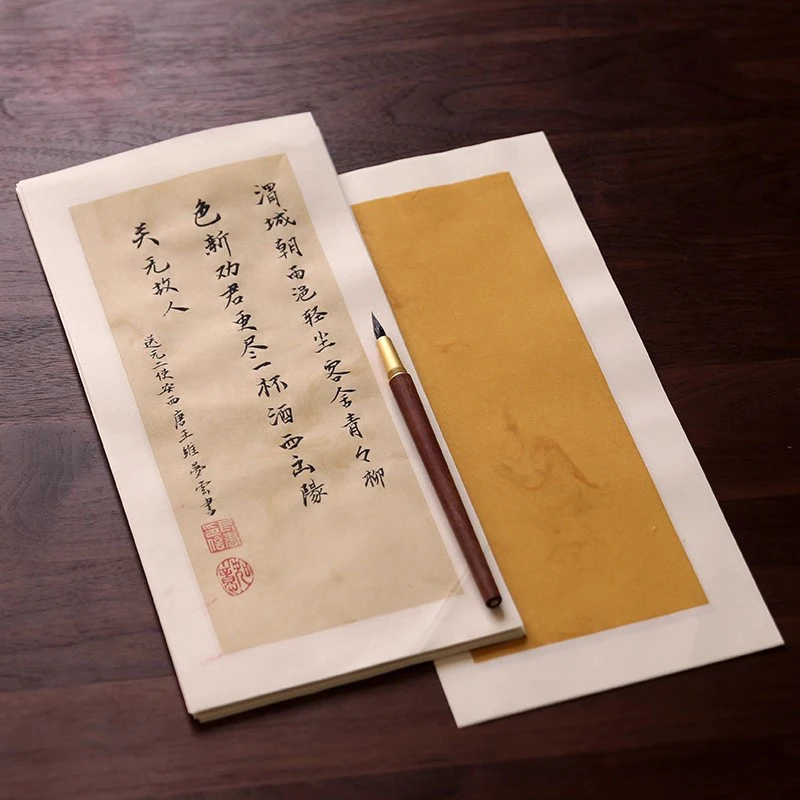 渭城朝雨浥轻尘客舍青々柳
色新劝君更尽一杯酒西出陽
关无故人
送元二使安西唐王維夢雲書